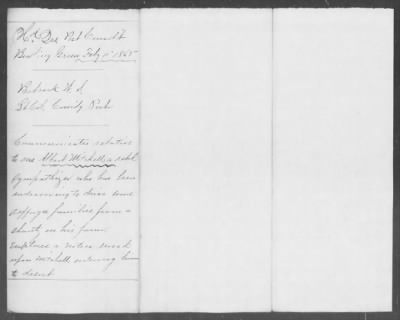 Hd. Qrs. Dist
Bowling Green, Feby 11" 1865
Lt Col, Comdg Post
Communicates relative
to one Albert Mitchell, a rebel
sympathizer who has been
endeavoring to drive some
refugee families from a
shanty on his farm.
Encloses a notice served
upon Mitchell ordering him
to desist.